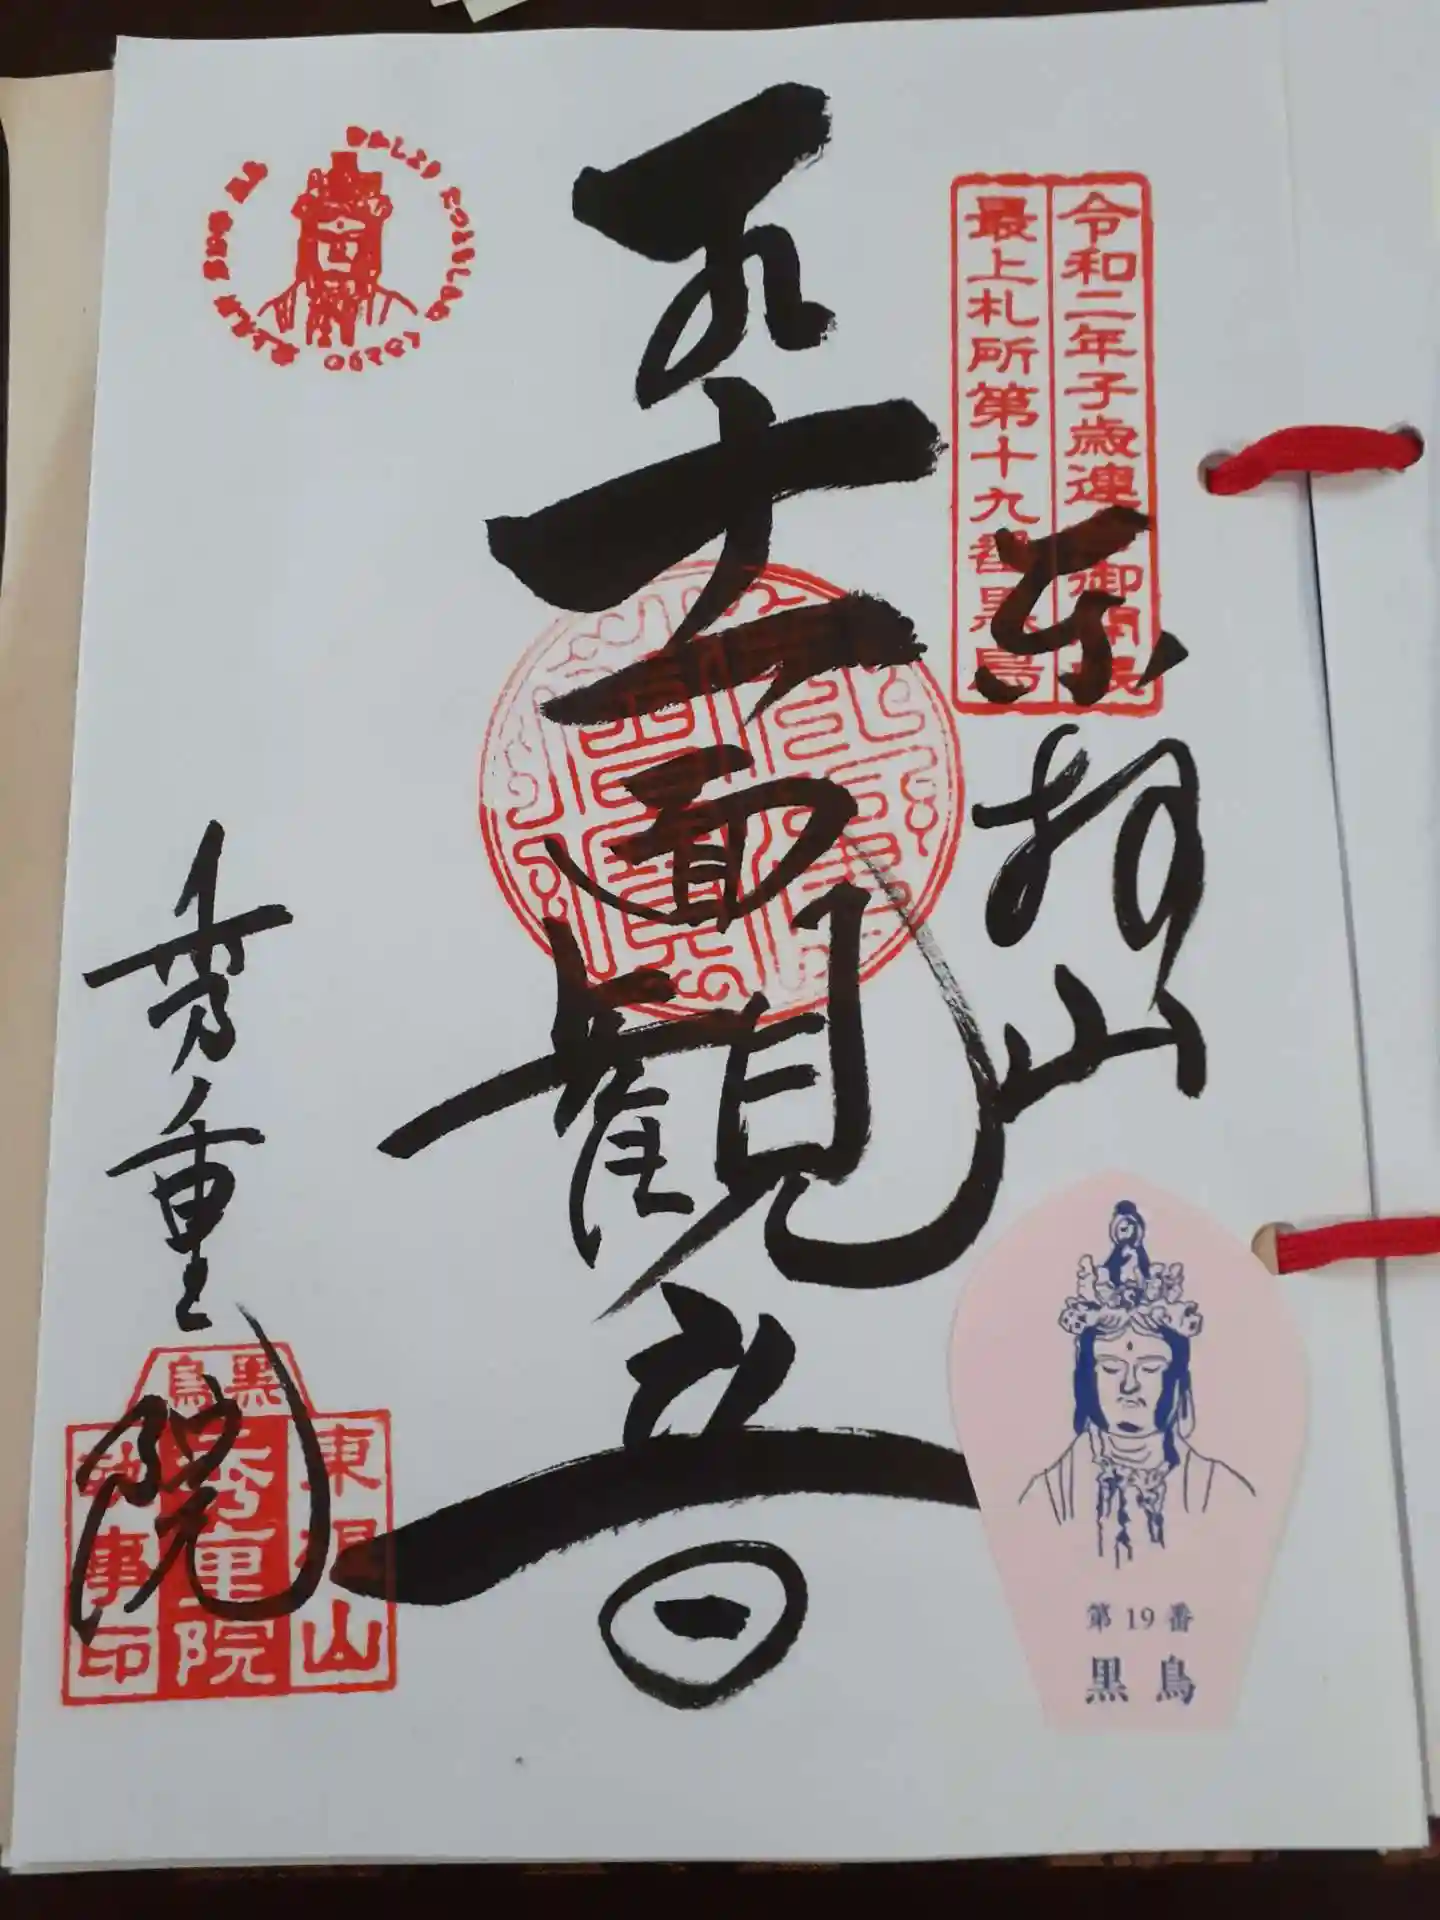 令和二年子歳連合御開帳
最上札所第十九番黒鳥
東根山
十一面観音
秀重院
黒鳥
東根山
秀重院
執事印
第19番
黒鳥